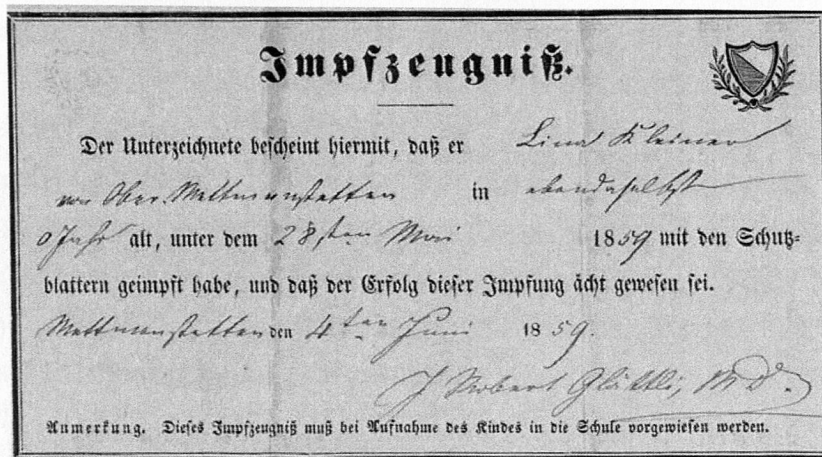 Impfzeugniß.
Der Unterzeichnete bescheint hiermit, daß er Lina Kleiner
von Ober Mettmenstetten in ebendaselbst
0 Jahr alt, unter dem 28sten Mai 1859 mit den Schutz=
blattern geimpft habe, und daß der Erfolg dieser Impfung ächt gewesen sei.
Mettmenstetten den 4ten Juni 1859.
J Robert Glättli, MD.
Anmerkung. Dieses Impfzeugniß muß bei Aufnahme des Kindes in die Schule vorgewiesen werden.